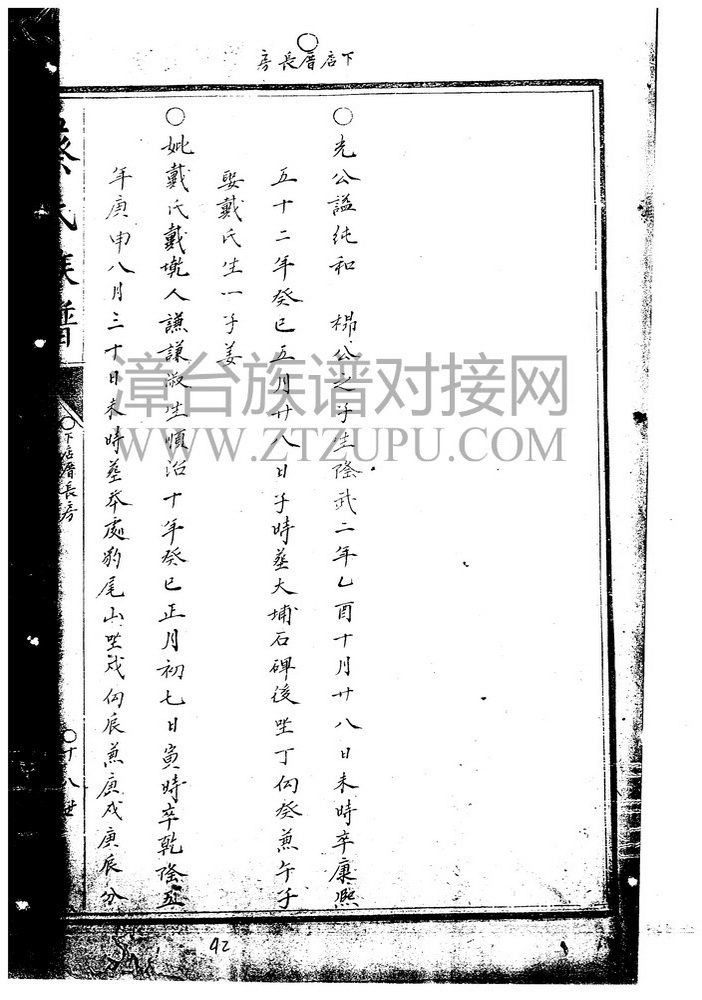 下店厝長房
○光公諡純和 楊公之子生隆武二年乙酉十月廿八日未時卒康熙
五十二年癸巳五月廿八日子時葬大埔石碑後坐丁向癸兼午子
娶戴氏生一子姜
○妣戴氏戴墘人謙謙淑生順治十年癸巳正月初七日寅時卒乾隆五
年庚申八月三十日未時葬本處豹尾山坐戌向辰兼庚戌庚辰分
氏族譜
○下店厝長房
○十八世
漳台族谱对接网
WWW.ZTZUPU.COM
42